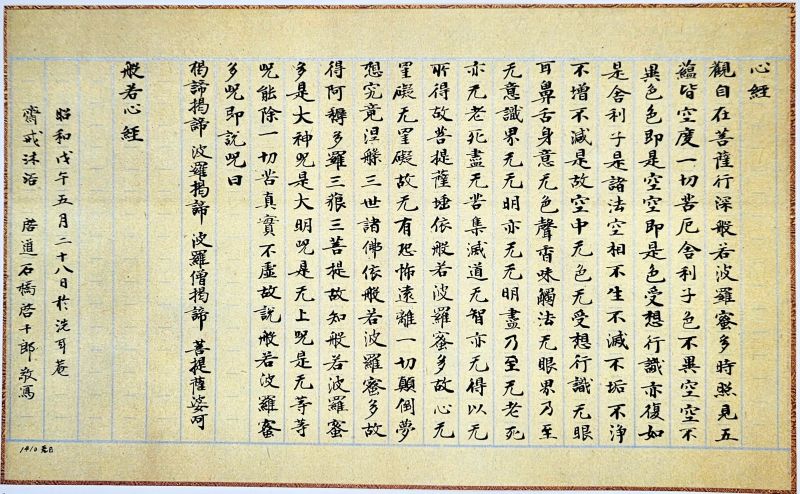 心經
觀自在菩薩行深般若波羅蜜多時照見五
蘊皆空度一切苦厄舍利子色不異空空不
異色色即是空空即是色受想行識亦復如
是舍利子是諸法空相不生不滅不垢不淨
不增不減是故空中无色无受想行識无眼
耳鼻舌身意无色聲香味觸法无眼界乃至
无意識界无无明亦无无明盡乃至无老死
亦无老死盡无苦集滅道无智亦无得以无
所得故菩提薩埵依般若波羅蜜多故心无
罣礙无罣礙故无有恐怖遠離一切顛倒夢
想究竟涅槃三世諸佛依般若波羅蜜多故
得阿耨多羅三藐三菩提故知般若波羅蜜
多是大神呪是大明呪是无上呪是无等等
呪能除一切苦真實不虛故說般若波羅蜜
多呪即說呪曰
揭諦揭諦 波羅揭諦 波羅僧揭諦 菩提薩婆訶
般若心經
昭和戊午五月二十八日於洗耳菴
齋戒沐浴 道石橋啓十郎敬寫
1410